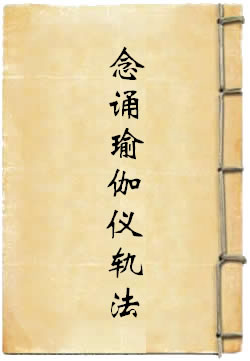 念诵瑜伽仪轨法